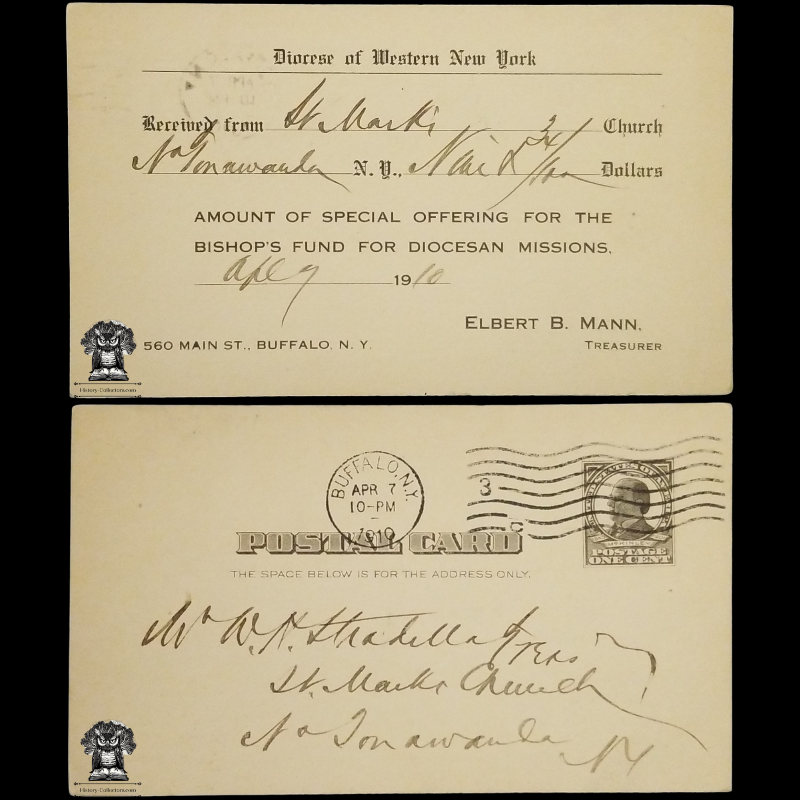 Diocese of Western New York
Received from St. Mark's Church
No Tonawanda N. Y., Nine & 24/100 Dollars
AMOUNT OF SPECIAL OFFERING FOR THE
BISHOP'S FUND FOR DIOCESAN MISSIONS.
Apl 7 1910
ELBERT B. MANN,
560 MAIN ST., BUFFALO, N. Y. TREASURER
History-Collections.com
BUFFALO, N.Y.
APR 7
10-PM
1910
3
UNITED STATES OF AMERICA
McKINLEY
POSTAGE
ONE CENT
POSTAL CARD
THE SPACE BELOW IS FOR THE ADDRESS ONLY.
Mr W. H. Stradella Treas
St. Marks Church
No Tonawanda
N Y
History-Collections.com